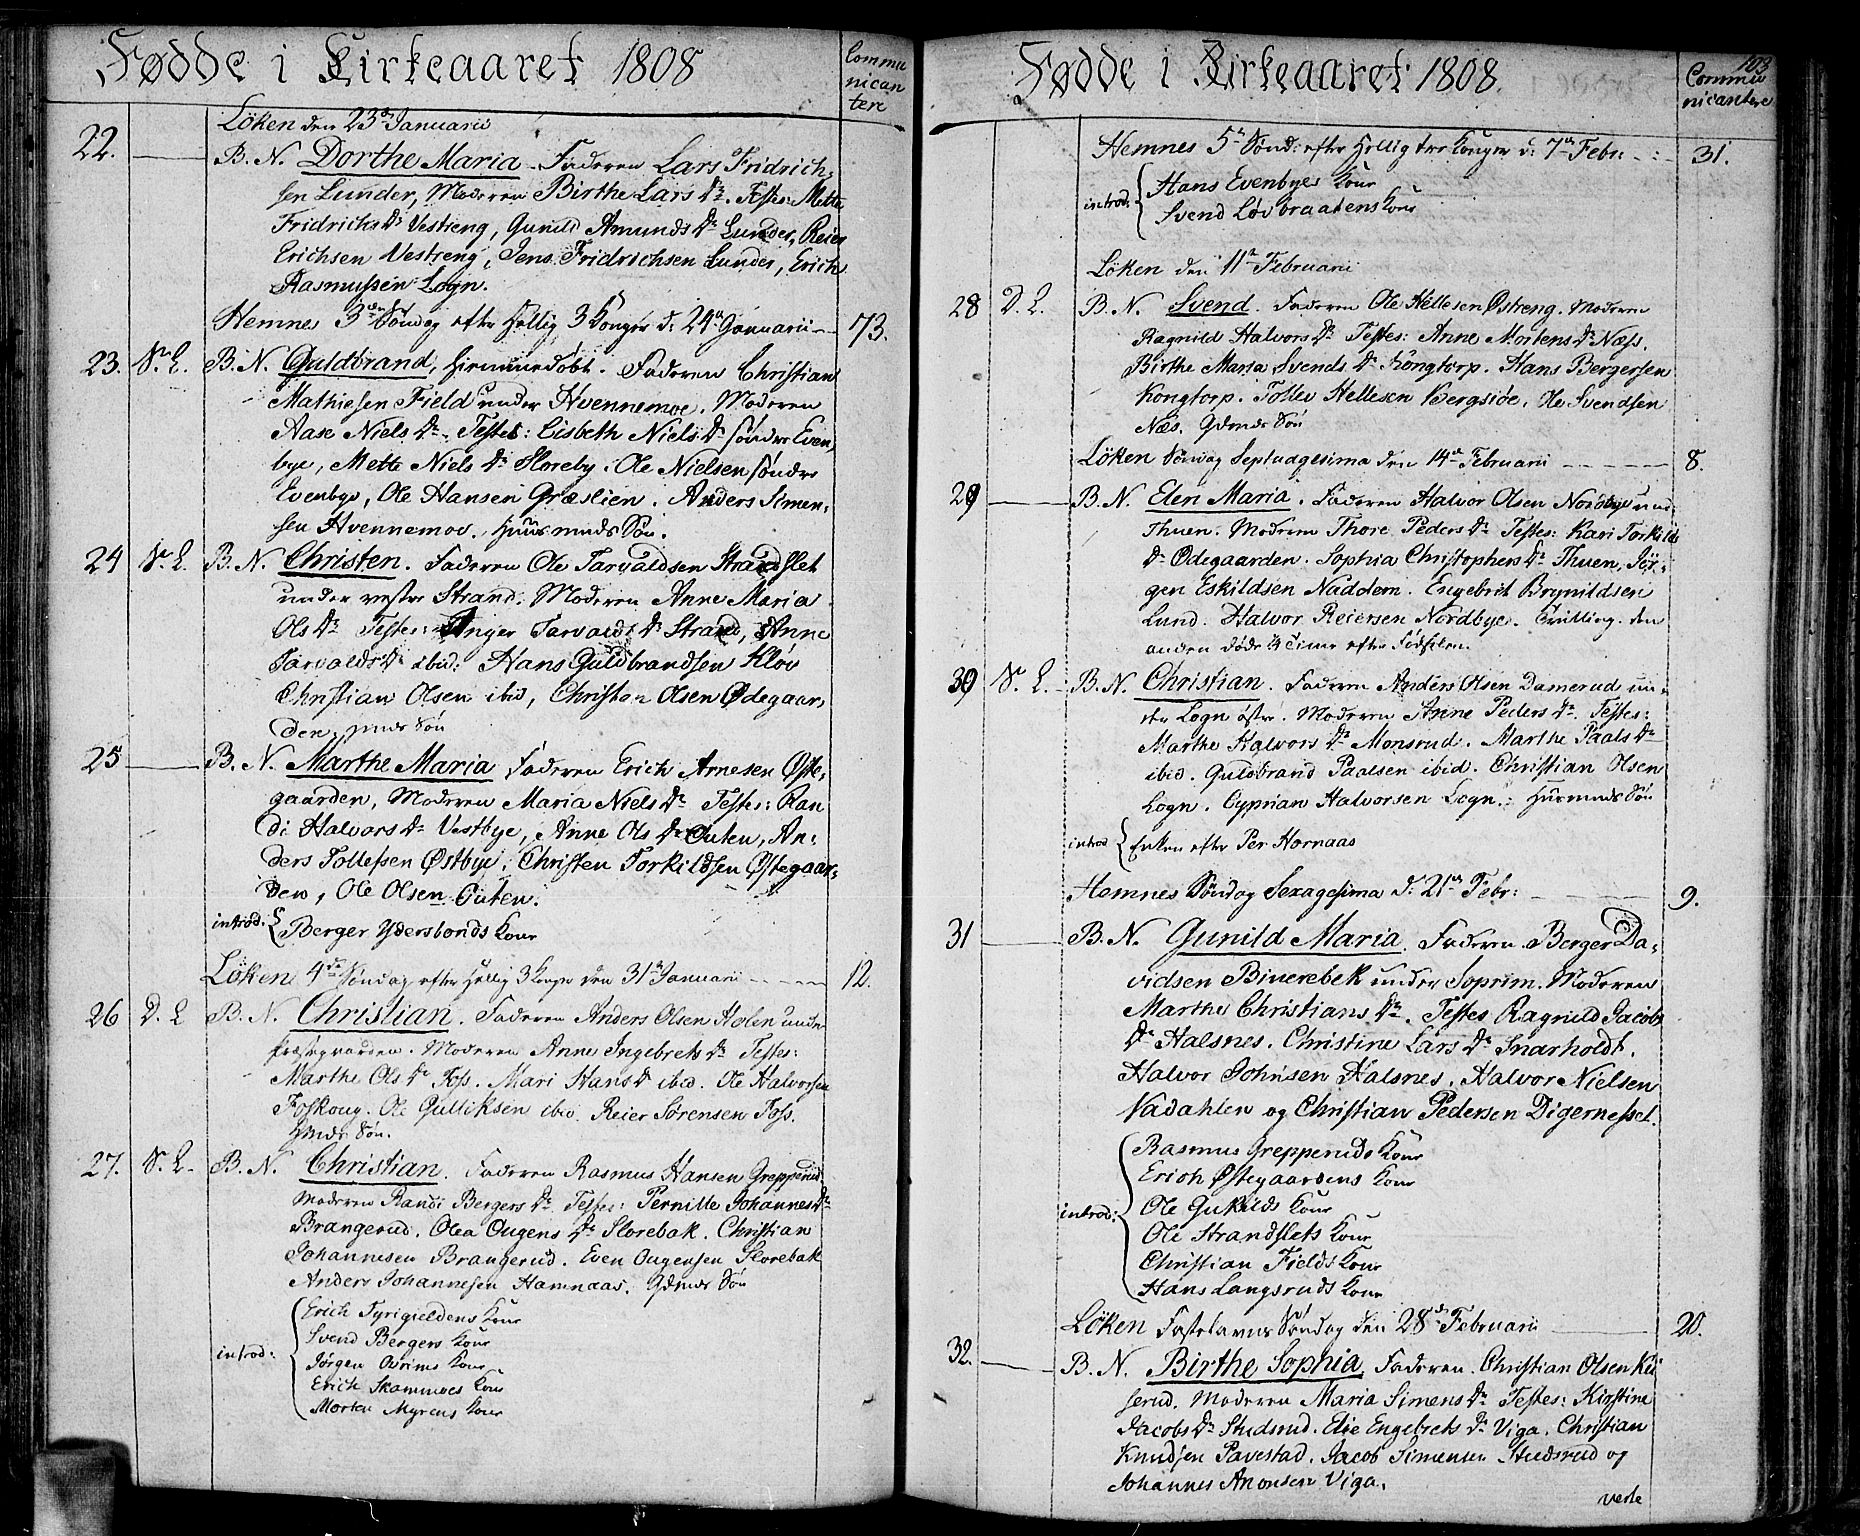 Fødde i Kirkeaaret 1808
Commu
nican
tere
Löken den 23de Januarii
22. B. N. Dorthe Maria. Faderen Lars Fridrich-
sen Lunder, Moderen Birthe Lars Dr. Testes: Mette
Fridrichs Dr Vestreng, Gunild Amunds Dr Lunder, Reier
Erichsen Vestreng, Jens Fridrichsen Lunder, Erich
Rasmussen Logn.
Hemnes 3die Søndag efter Hellig 3 Konger d: 24de Januarii — 73.
23. S. L. B. N. Guldbrand, hiemmedøbt. Faderen Christian
Mathiesen Field under Hvennemoe. Moderen
Aase Niels Dr. Testes: Lisbeth Niels Dr søndre Even-
bye, Mette Niels Dr Sloreby. Ole Nielsen søndre
Evenbye, Ole Hansen Græslien. Anders Simen-
sen Hvennemoe. Huusmands Søn.
24 S. L. B. N. Christen. Faderen Ole Tarvaldsen Strandslet
under vestre Strand. Moderen Anne Maria
Ols Dr Testes: Inger Tarvalds Dr Strand, Anne
Tarvalds Dr ibid: Hans Guldbrandsen Kløv
Christian Olsen ibid, Christen Olsen Ødegaar-
den. Søn
25 B. N. Marthe Maria Faderen Erich Arnesen Øste-
gaarden, Moderen Maria Niels Dr Testes: Ran
di Halvors Dr Vestbye, Anne Ols Dr Outen, An-
ders Tollefsen Østbye. Christen Torkildsen Østegaar-
den, Ole Olsen Outen.
introd: { Berger Ydersbonds Kone
Löken 4de Søndag efter Hellig 3 Konger den 31te Januarii — 12.
26 D. L B. N. Christian. Faderen Anders Olsen Holen under
Præstegaarden. Moderen Anne Ingebrets Dr Testes:
Marthe Ols Dr Foss. Mari Hans Dr ibid. Ole Halvorsen
Foskoug. Ole Gulliksen ibid. Reier Sørensen Foss.
Hmds Søn.
27. S. L. B. N. Christian. Faderen Rasmus Hansen Grepperud
Moderen Randi Bergers Dr. Testes: Pernille Johannes Dr
Brangerud. Olea Ougens Dr Slorebak. Christian
Johannesen Brangerud. Even Ougensen Slorebak
Anders Johannesen Hamnaas. Gdmds Søn
Erich Tyrigieldens Kone
Svend Bergers Kone
introd: Jørgen Kone
Erich Skammoes Kone
Morten Myrens Kone
Fødde i Kirkeaaret 1808.
103
Commu
nicantere
Hemnes 5te Sønd: efter Hellig tre Konger d: 7de Febr: — 31.
introd: Hans Evenbyes Kone
Svend Løvbraatens Kone
Löken den 11te Februarii
28 D. L. B. N. Svend. Faderen Ole Hellesen Østreng. Moderen
Ragnild Halvors Dr Testes: Anne Mortens Dr Næss.
Birthe Maria Svends Dr Kongtorp. Hans Bergersen
Kongtorp. Tollev Hellesen Bergsiøe. Ole Svendsen
Næs. Gdmds Søn
Löken Søndag Septuagesima den 14de Februarii — 8.
29 B. N. Elen Maria. Faderen Halvor Olsen Nordbye und.
Thuen. Moderen Thore Peders Dr Testes: Kari Torkilds
Dr Ødegaarden. Sophia Christophers Dr Thuen, Jör-
gen Eskildsen Naddem. Engebret Brynildsen
Lund. Halvor Reiersen Nordbye. Tvilling. den
anden døde 4 Timer efter Fødselen.
30 S. L. B. N. Christian. Faderen Anders Olsen Damerud un-
der Logn østre. Moderen Anne Peders Dr. Testes:
Marthe Halvors Dr Monsrud. Marthe Paals Dr
ibid. Guldbrand Paalsen ibid. Christian Olsen
Logn. Cyprian Halvorsen Logn. Husmands Søn
introd { Enken efter Per Hornaas
Hemnes Søndag Sexagesima d: 21de Febr: — 9.
31 B. N. Gunild Maria. Faderen Berger Da-
vidsen Biverebek under Soprim. Moderen
Marthe Christians Dr. Testes Ragnild Jacobs
Dr Halsnes. Christine Lars Dr Snarholdt.
Halvor Johnsen Halsnes. Halvor Nielsen
Vadahlen og Christian Pedersen Digernesset.
Rasmus Grepperuds Kone
Erich Østegaardens Kone
introd: Ole Gukilds Kone
Ole Strandslets Kone
Christian Fields Kone
Hans Langsruds Kone
Löken Fastelavns Søndag den 28de Februarii — 20.
32. B. N. Birthe Sophia. Faderen Christian Olsen Kil
serud. Moderen Maria Simens Dr Testes: Kirstine
Jacobs Dr Studsrud. Elie Engebrets Dr Viga. Christian
Knudsen Pavestad. Jacob Simensen Studsrud og
Johannes Amonsen Viga.
verte